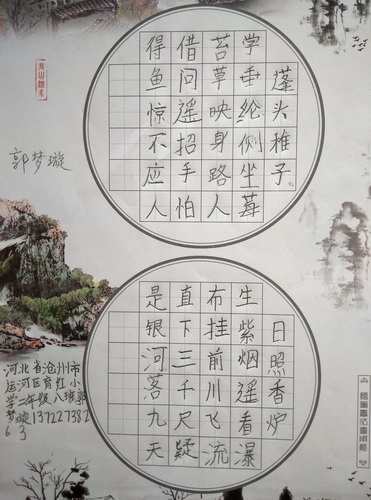 蓬头稚子。
学垂纶侧坐莓
苔草映身路人
借问遥招手怕
得鱼惊不应人
郭梦璇
日照香炉
生紫烟遥看瀑
布挂前川飞流
直下三千尺疑
是银河落九天
河北省沧州市
运河区育红小
学二年级八班郭
梦璇137227382
63